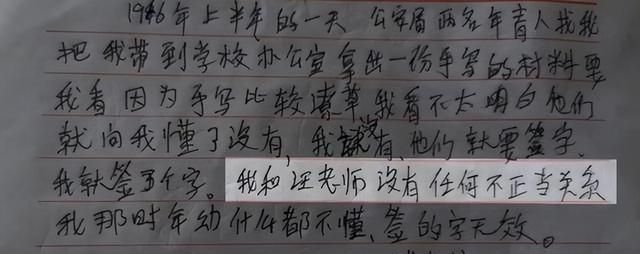 年上半年的一天 公安局两名年青人找我
把我带到学校办公室拿出一份手写的材料要
我看因为手写比较潦草,我看不太明白他们
就问我懂了没有,我说没有,他们就要签字.
我就签了个字。我和汪老师没有任何不正当关系
我那时年幼什么都不懂、签的字无效。